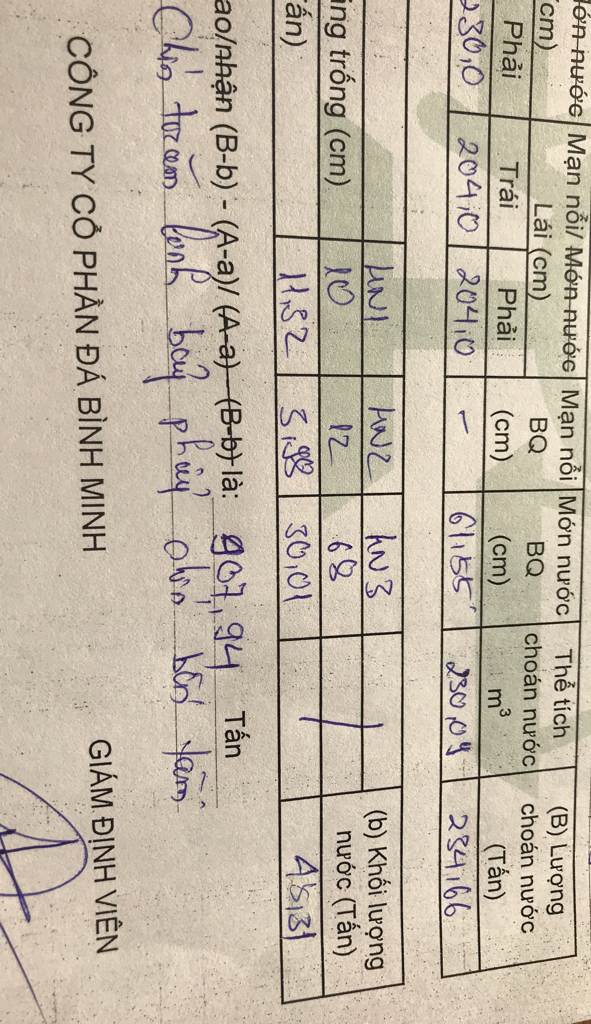 Mớn nước Mạn nổi/ Mớn nước Mạn nổi Mớn nước Thể tích (B) Lượng
(cm) Lái (cm) BQ BQ choán nước choán nước
Phải Trái Phải (cm) (cm) m³ (Tấn)
230,0 204,0 204,0 - 61,55 230,09 234,66
HN1 HN2 HN3 (b) Khối lượng
ng trống (cm) 10 12 68 nước (Tấn)
ấn) 11,32 3,98 30,01 45,31
ao/nhận (B-b) - (A-a)/ (A-a) - (B-b) là: 907,94 Tấn
Chín trăm linh bảy phẩy chín bốn tấn
CÔNG TY CỔ PHẦN ĐÁ BÌNH MINH GIÁM ĐỊNH VIÊN